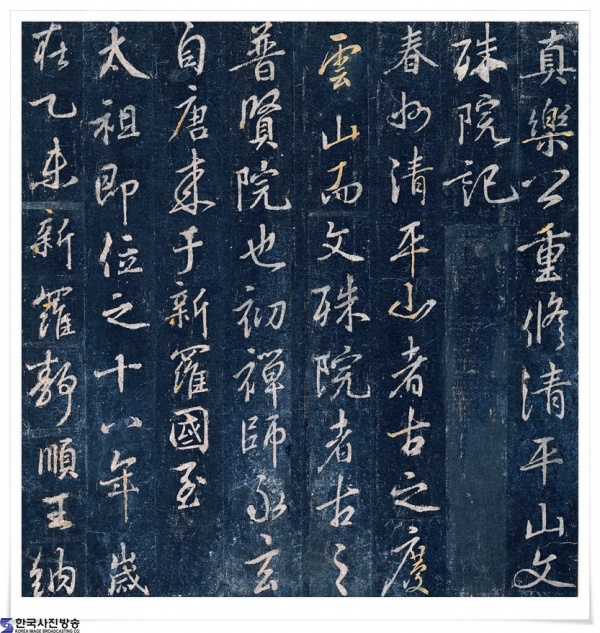 真樂公重修清平山文
殊院記
春州清平山者古之慶
雲山而文殊院者古之
普賢院也初禪師永玄
自唐來于新羅國至
太祖即位之十八年歲
在乙未新羅靜順王納
한국사진방송
KOREA IMAGE BROADCASTING CO.